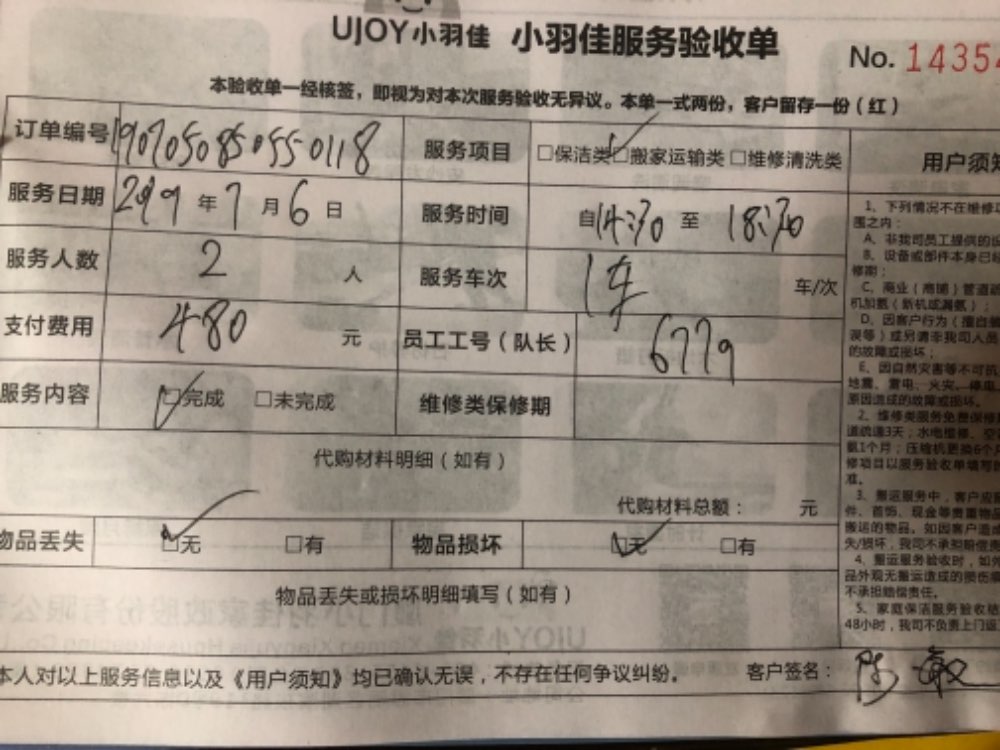 UJOY小羽佳 小羽佳服务验收单
No. 14354
本验收单一经核签，即视为对本次服务验收无异议。本单一式两份，客户留存一份（红）
订单编号 1907050850550118 服务项目 □保洁类 □搬家运输类 □维修清洗类
服务日期 2019 年 7 月 6 日 服务时间 自 14:30 至 18:30
服务人数 2 人 服务车次 1车 车/次
支付费用 480 元 员工工号（队长） 6779
服务内容 □完成 □未完成 维修类保修期
代购材料明细（如有）
代购材料总额： 元
物品丢失 □无 □有 物品损坏 □无 □有
物品丢失或损坏明细填写（如有）
本人对以上服务信息以及《用户须知》均已确认无误，不存在任何争议纠纷。 客户签名： 陈敏
用户须知
1、下列情况不在维修
围之内：
A、非我司员工提供的
B、设备或部件本身已
修期；
C、商业（商铺）管道
机加氨（新机或漏氨）；
D、因客户行为（擅自
误等）或另请非我司人员
的故障或损坏；
E、因自然灾害等不可抗
地震、雷电、火灾、停电
原因造成的故障或损坏。
2、维修类服务免费保修
道疏通3天；水电维修、空
氨1个月；压缩机更换6个
修项目以服务验收单填写
准。
3、搬运服务中，客户应
件、首饰、现金等贵重物品
搬运的物品。如因客户
失/损坏，我司不承担赔偿
4、搬运服务验收时，如
品外观无搬运造成的损伤
不承担赔偿责任。
5、家庭保洁服务验收
48小时，我司不负责上门返